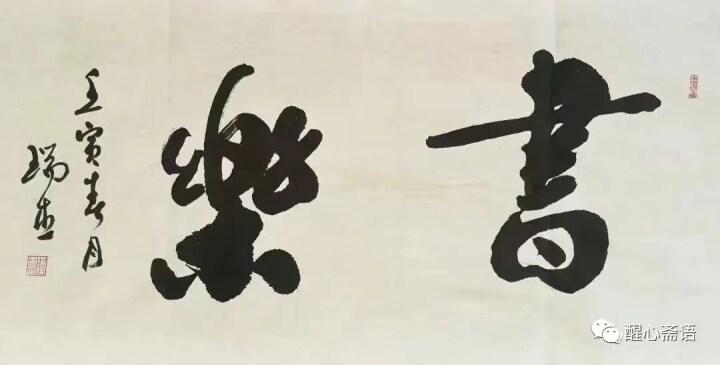 書樂
壬寅春月
瑞杰
醒心斋语